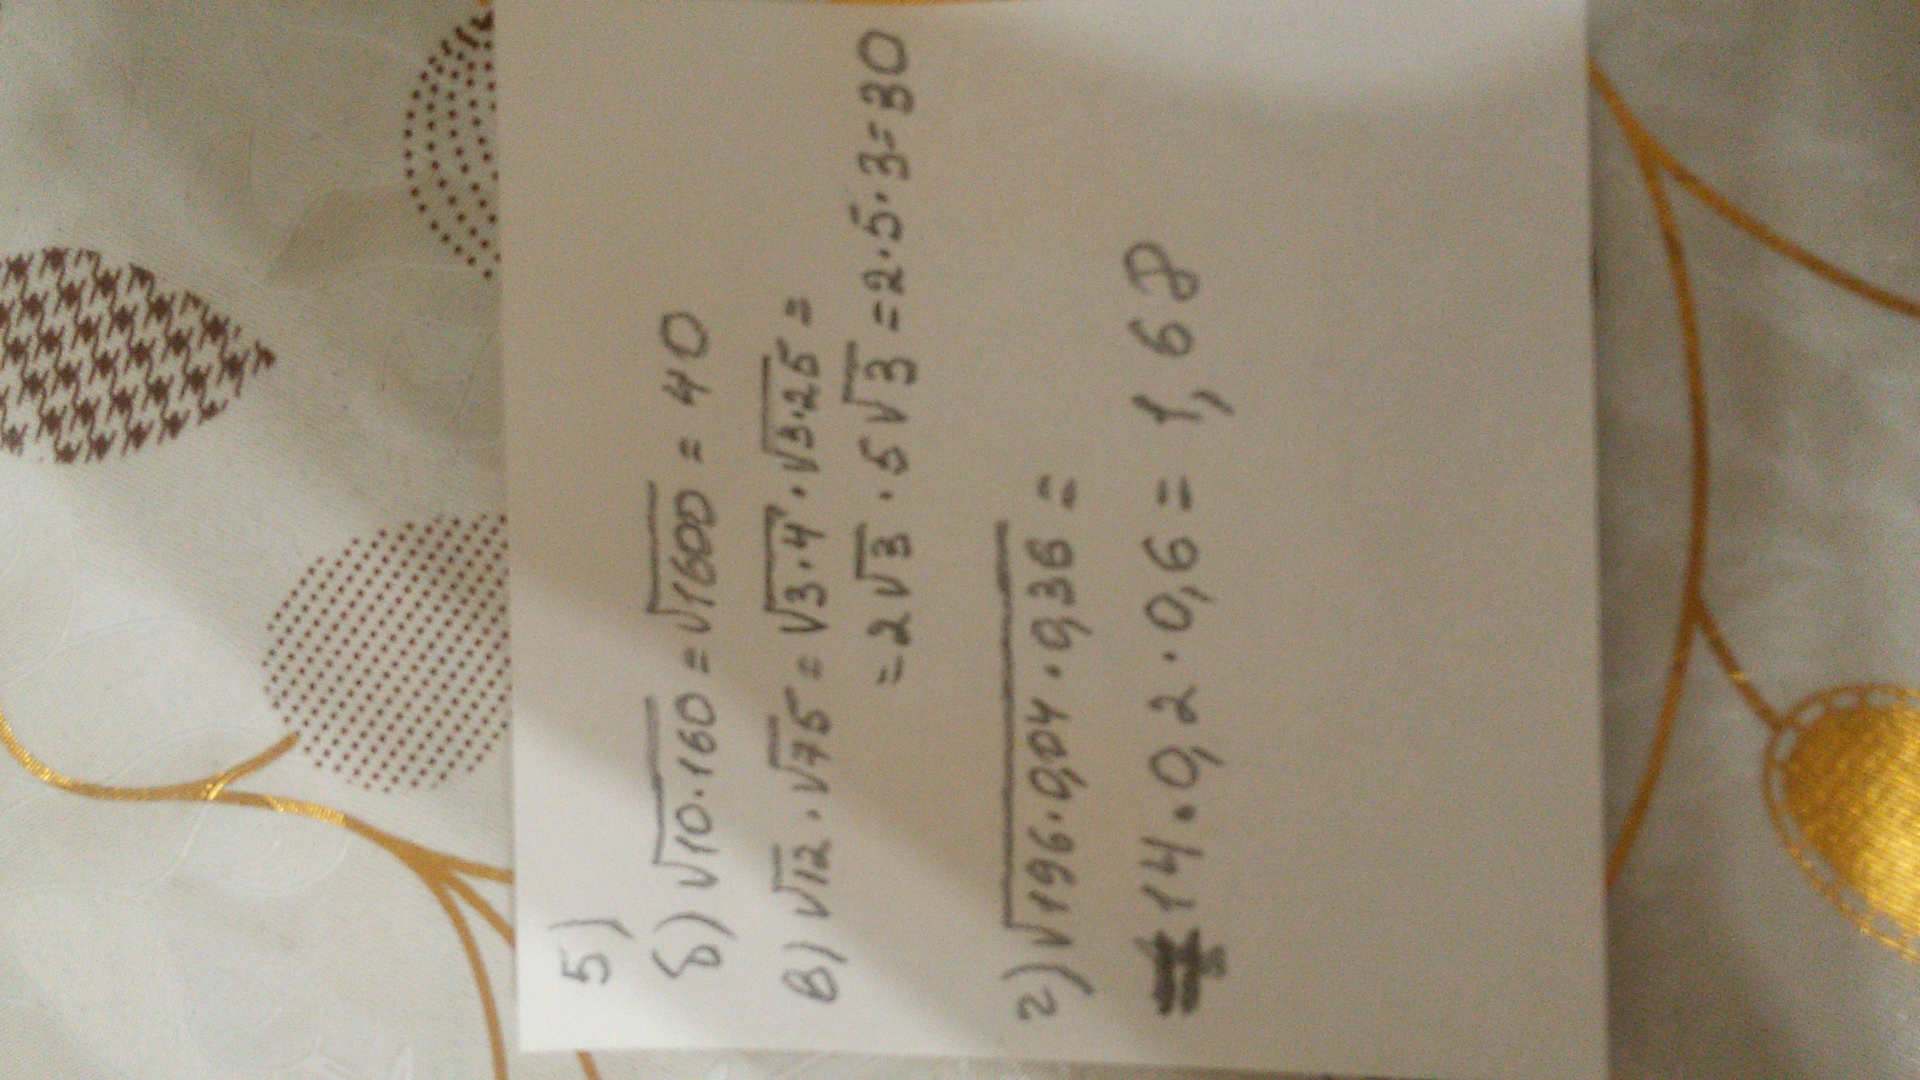 5)
б) √10·160 = √1600 = 40
в) √12 · √75 = √3·4 · √3·25 =
= 2√3 · 5√3 = 2·5·3=30
г) √196·0,04·0,36 =
14·0,2·0,6 = 1,68